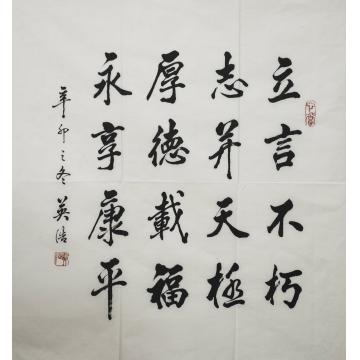 立言不朽
志并天極
厚德載福
永享康平
辛卯之冬 英浩